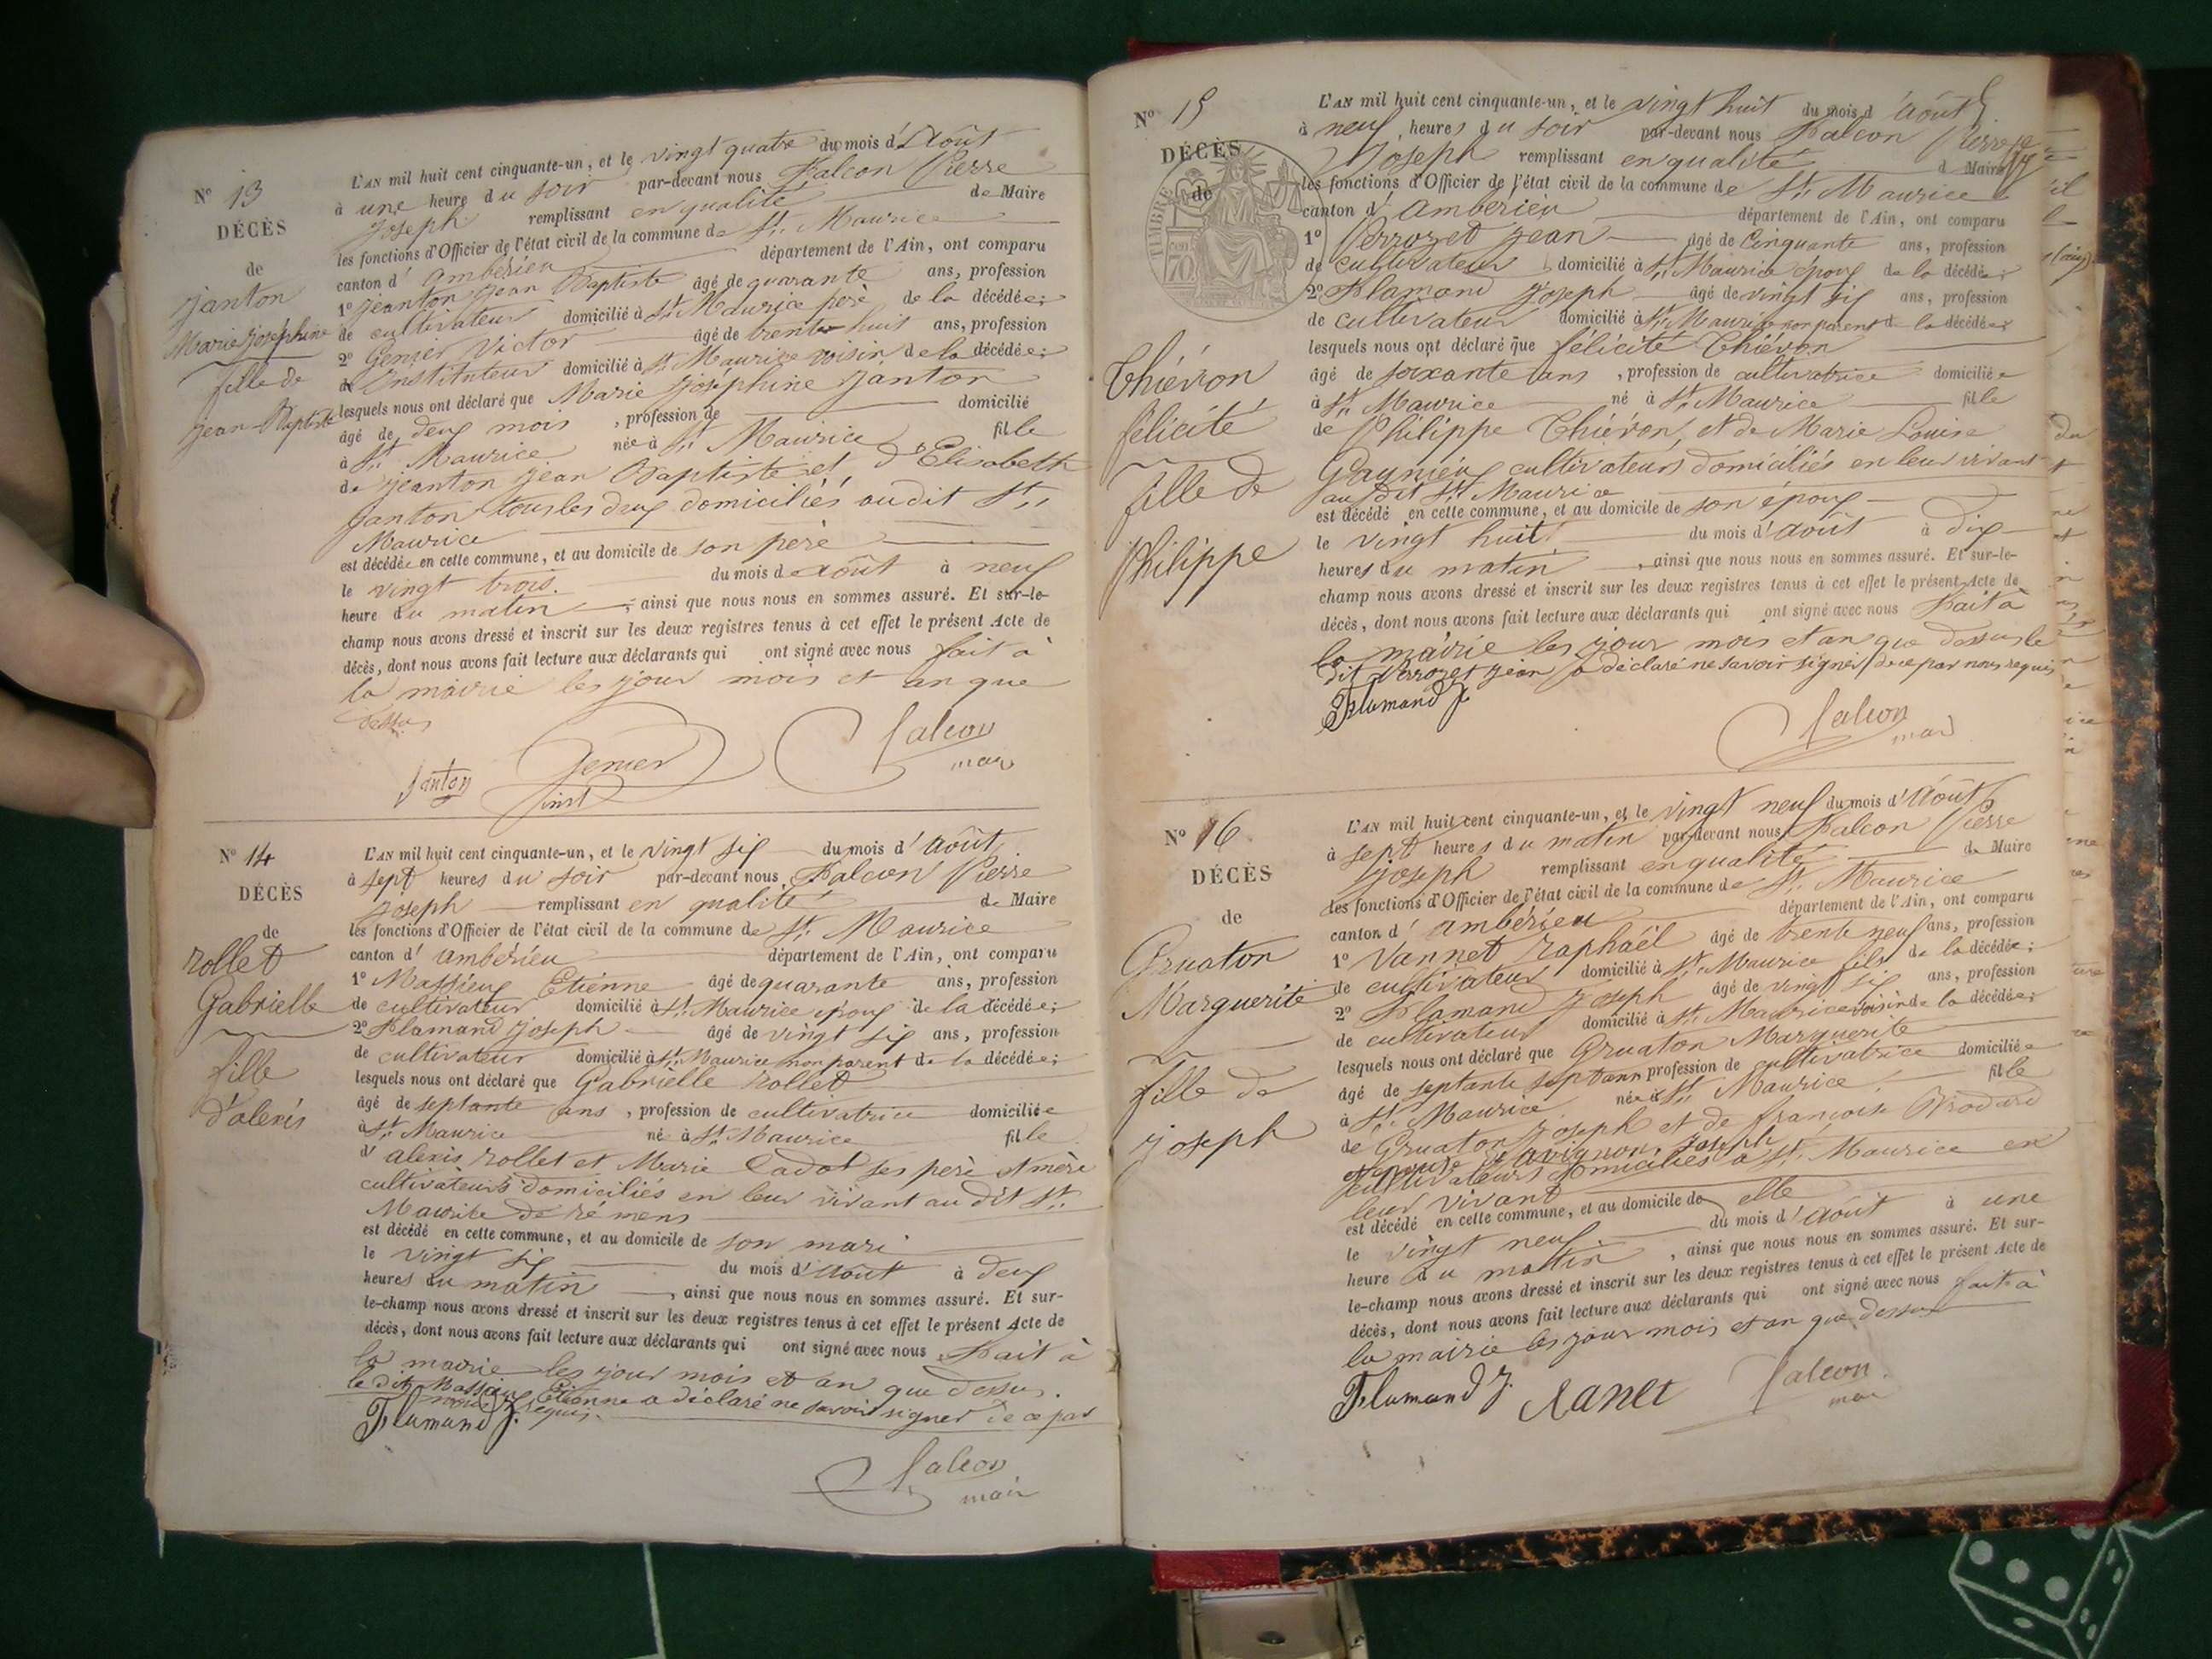 N° 13
DÉCÈS
de
Janton
Marie Joséphine
fille de
Jean Baptiste
L'AN mil huit cent cinquante-un, et le vingt quatre du mois d'Août
à une heure du soir par-devant nous Falcon Pierre
Joseph remplissant en qualité de Maire
les fonctions d'Officier de l'état civil de la commune de St. Maurice
canton d' ambérieu département de l'Ain, ont comparu
1° Jeanton Jean Baptiste âgé de quarante ans, profession
de cultivateur domicilié à St Maurice père de la décédée;
2° Genier Victor âgé de trente huit ans, profession
d' Instituteur domicilié à St Maurice voisin de la décédée;
lesquels nous ont déclaré que Marie Joséphine Janton
âgé de deux mois, profession de domicilié
à St. Maurice née à St. Maurice fille
de Jeanton Jean Baptiste et d'Elisabeth
Janton tous les deux domiciliés audit St.
Maurice
est décédée en cette commune, et au domicile de son père
le vingt trois du mois d'août à neuf
heure du matin, ainsi que nous nous en sommes assuré. Et sur-le-
champ nous avons dressé et inscrit sur les deux registres tenus à cet effet le présent Acte de
décès, dont nous avons fait lecture aux déclarants qui ont signé avec nous fait à
la mairie les jour mois et an que
dessus
Janton Genier inst Falcon
mair
N° 14
DÉCÈS
de
rollet
Gabrielle
fille
d'alexis
L'AN mil huit cent cinquante-un, et le vingt six du mois d' Août
à sept heures du soir par-devant nous Falcon Pierre
Joseph remplissant en qualité de Maire
les fonctions d'Officier de l'état civil de la commune de St. Maurice
canton d' ambérieu département de l'Ain, ont comparu
1° Massieux Etienne âgé de quarante ans, profession
de cultivateur domicilié à St. Maurice époux de la décédée;
2° Flamand Joseph âgé de vingt six ans, profession
de cultivateur domicilié à St. Maurice non parent de la décédée;
lesquels nous ont déclaré que Gabrielle rollet
âgé de septante ans, profession de cultivatrice domiciliée
à St. Maurice né à St. Maurice fille
d' alexis rollet et Marie Cadot ses père et mère
cultivateurs domiciliés en leur vivant au dit St.
Maurice de rémens
est décédé en cette commune, et au domicile de son mari
le vingt six du mois d'Août à deux
heures du matin, ainsi que nous nous en sommes assuré. Et sur-
le-champ nous avons dressé et inscrit sur les deux registres tenus à cet effet le présent Acte de
décès, dont nous avons fait lecture aux déclarants qui ont signé avec nous. Fait à
la mairie les jour mois et an que dessus.
le dit Massieux Etienne a déclaré ne savoir signer de ce par
nous requis.
Flamand J.
Falcon
mair
N° 15
DÉCÈS
de
TIMBRE
70
Thiévon
félicité
fille de
Philippe
L'AN mil huit cent cinquante-un, et le vingt huit du mois d'Août
à neuf heures du soir par-devant nous Falcon Pierre
Joseph remplissant en qualité d Maire
les fonctions d'Officier de l'état civil de la commune de St. Maurice
canton d' ambérieu département de l'Ain, ont comparu
1° Verrozet Jean âgé de Cinquante ans, profession
de cultivateur domicilié à St. Maurice époux de la décédée;
2° Flamand Joseph âgé de vingt six ans, profession
de cultivateur domicilié à St. Maurice non parent d la décédée;
lesquels nous ont déclaré que félicité Thiévon
âgé de soixante ans, profession de cultivatrice domiciliée
à St. Maurice né à St. Maurice fille
de Philippe Thiévon, et de Marie Louise
Gagnieux cultivateurs domiciliés en leur vivant
au dit St. Maurice
est décédé en cette commune, et au domicile de son époux
le vingt huit du mois d'août à dix
heures du matin, ainsi que nous nous en sommes assuré. Et sur-le-
champ nous avons dressé et inscrit sur les deux registres tenus à cet effet le présent Acte de
décès, dont nous avons fait lecture aux déclarants qui ont signé avec nous Fait à
la mairie les jour mois et an que dessus le
dit Verrozet Jean a déclaré ne savoir signer de ce par nous requis
Flamand J.
Falcon
mair
N° 16
DÉCÈS
de
Gruaton
Marguerite
fille de
Joseph
L'AN mil huit cent cinquante-un, et le vingt neuf du mois d'Août
à sept heures du matin par-devant nous Falcon Pierre
Joseph remplissant en qualité de Maire
les fonctions d'Officier de l'état civil de la commune de St. Maurice
canton d' ambérieu département de l'Ain, ont comparu
1° Vannet Raphaël âgé de trente neuf ans, profession
de cultivateur domicilié à St. Maurice fils de la décédée;
2° Flamand Joseph âgé de vingt six ans, profession
de cultivateur domicilié à St. Maurice voisin de la décédée;
lesquels nous ont déclaré que Gruaton Marguerite
âgé de septante sept ans profession de cultivatrice domiciliée
à St. Maurice née à St. Maurice fille
de Gruaton Joseph et de françoise Brodard
Joseph
cultivateurs domiciliés à St. Maurice en
leur vivant
est décédé en cette commune, et au domicile de elle
le vingt neuf du mois d'août à une
heure du matin, ainsi que nous nous en sommes assuré. Et sur-
le-champ nous avons dressé et inscrit sur les deux registres tenus à cet effet le présent Acte de
décès, dont nous avons fait lecture aux déclarants qui ont signé avec nous fait à
la mairie les jour mois et an que dessus
Flamand J. Falcon
mair